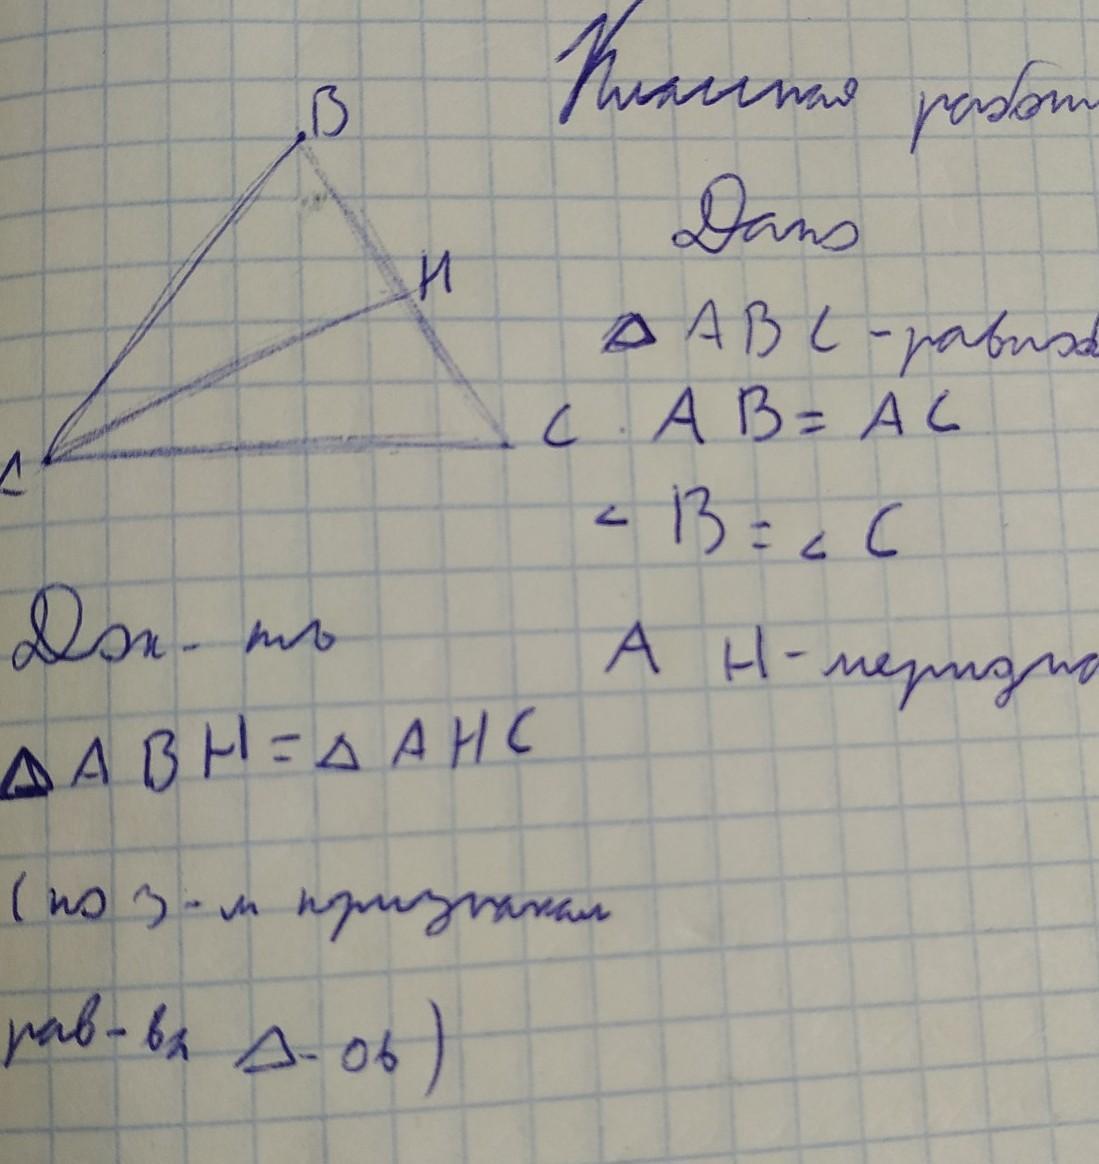 Классная работ
B
Дано
H
△ABC - равноб
C
AB = AC
A
∠B = ∠C
Док-ть
AH - 
△ABH = △AHC
(по 3-м признакам
рав-ва △-ов)